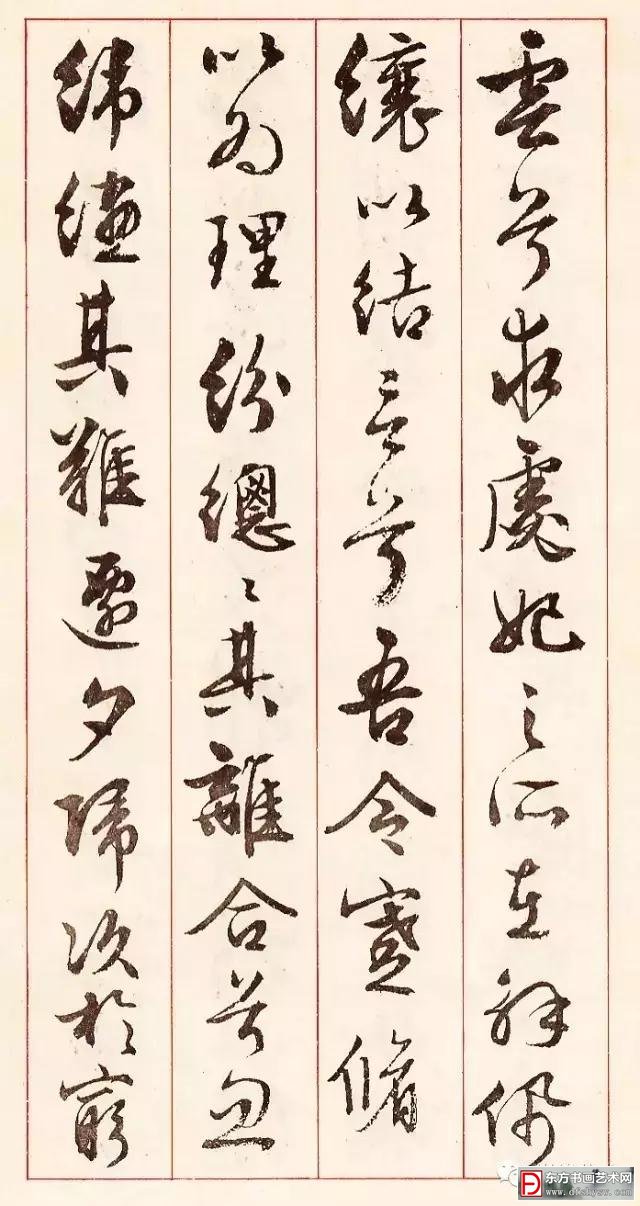 雲兮求虙妃之所在解佩
纕以結言兮吾令蹇脩
以為理紛總〻其離合兮忽
緯繣其難遷夕歸次於窮
东方书画艺术网
www.dfshysw.com